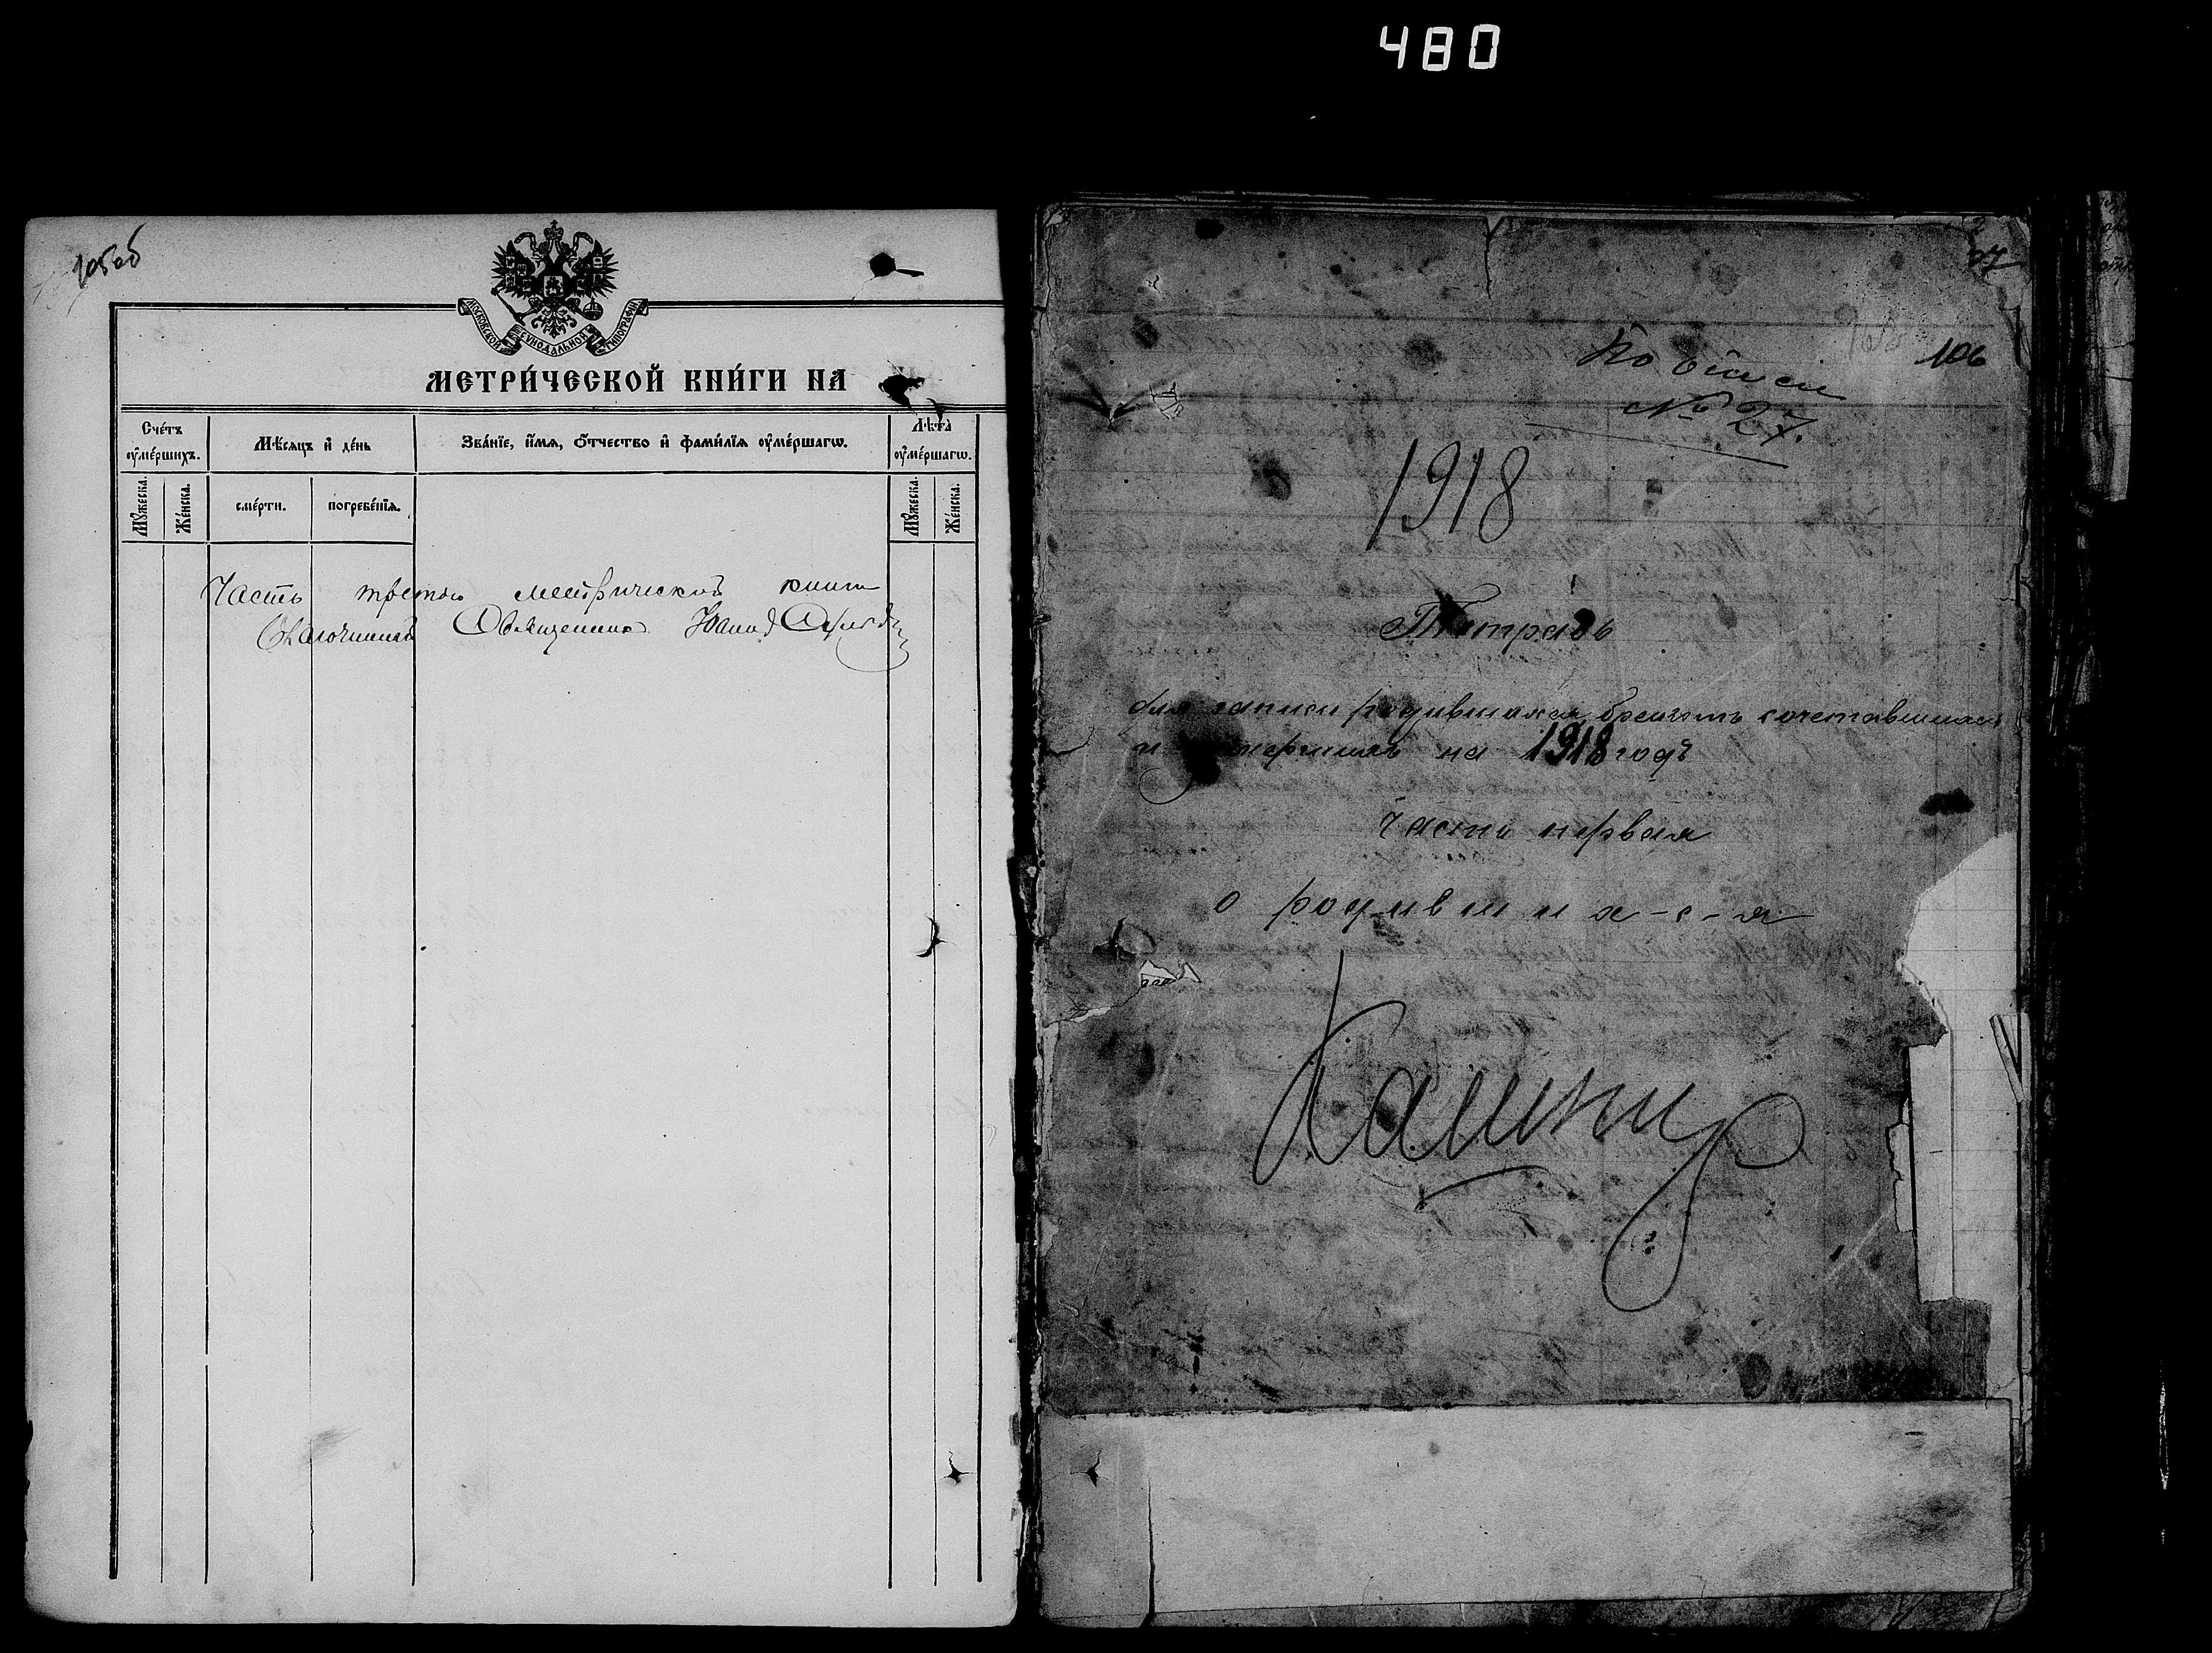 480
105об
МОСКОВСКОЙ СѴНОДАЛЬНОЙ ТИПОГРАФІИ
МЕТРИ́ЧЕСКОЙ КНИ́ГИ НА
Сче́тъ ᲂу҆ме́ршихъ.
Мѣ́сяцъ и҆ де́нь
Зва́нїе, и҆́мѧ, ѻ҆́тчество и҆ фами́лїѧ ᲂу҆ме́ршагѡ.
Лѣ́та ᲂу҆ме́ршагѡ.
Мꙋ́жеска.
Же́нска.
сме́рти.
погребе́нїѧ.
Мꙋ́жеска.
Же́нска.
Часть третью метрической книги
Благочинный Священник Іоанн
106
По описи
№ 27.
1918
Тетрадь
для записи родившихся, бракомъ сочетавшихся
и умершихъ на 1918 годъ
Часть первая
о родивших-с-я